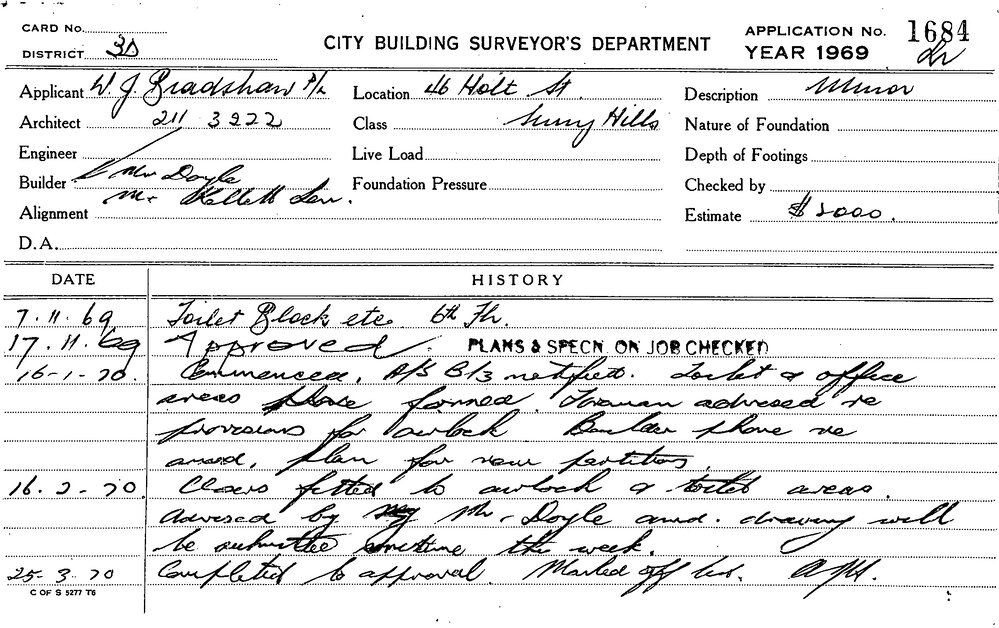 CARD No.
DISTRICT 3D
CITY BUILDING SURVEYOR'S DEPARTMENT
APPLICATION No. 1684
YEAR 1969
Applicant W. J. Bradshaw P/L
Location 46 Holt St.
Description Minor
Architect 211 3222
Class Surry Hills
Nature of Foundation
Engineer
Live Load
Depth of Footings
Builder Mr Doyle
Mr Kellett
Foundation Pressure
Checked by
Alignment
Estimate $2000.
D.A.
DATE HISTORY
7.11.69 Toilet Block etc. 6th Flr.
17.11.69 Approved. PLANS & SPECN. ON JOB CHECKED
16-1-70. Commenced. A/S B/3 notified. Toilet & office
areas formed. Foreman advised re
provisions for airlock Builder phone re
amed. plan for new partitions.
16.2-70. Closers fitted to airlock & toilet areas.
Advised by Mr. Doyle amd. drawing will
be submitted sometime this week.
25-3.70 Completed to approval. Marked off
C OF S 5277 T6